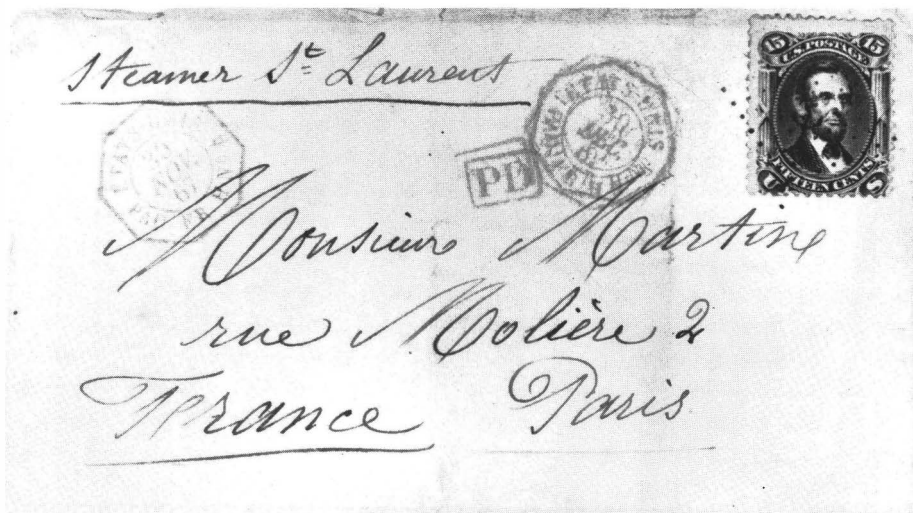 Steamer St Laurent
15 U.S. POSTAGE 15
FIFTEEN CENTS
U S
PD
Monsieur Martine
rue Molière 2
France Paris